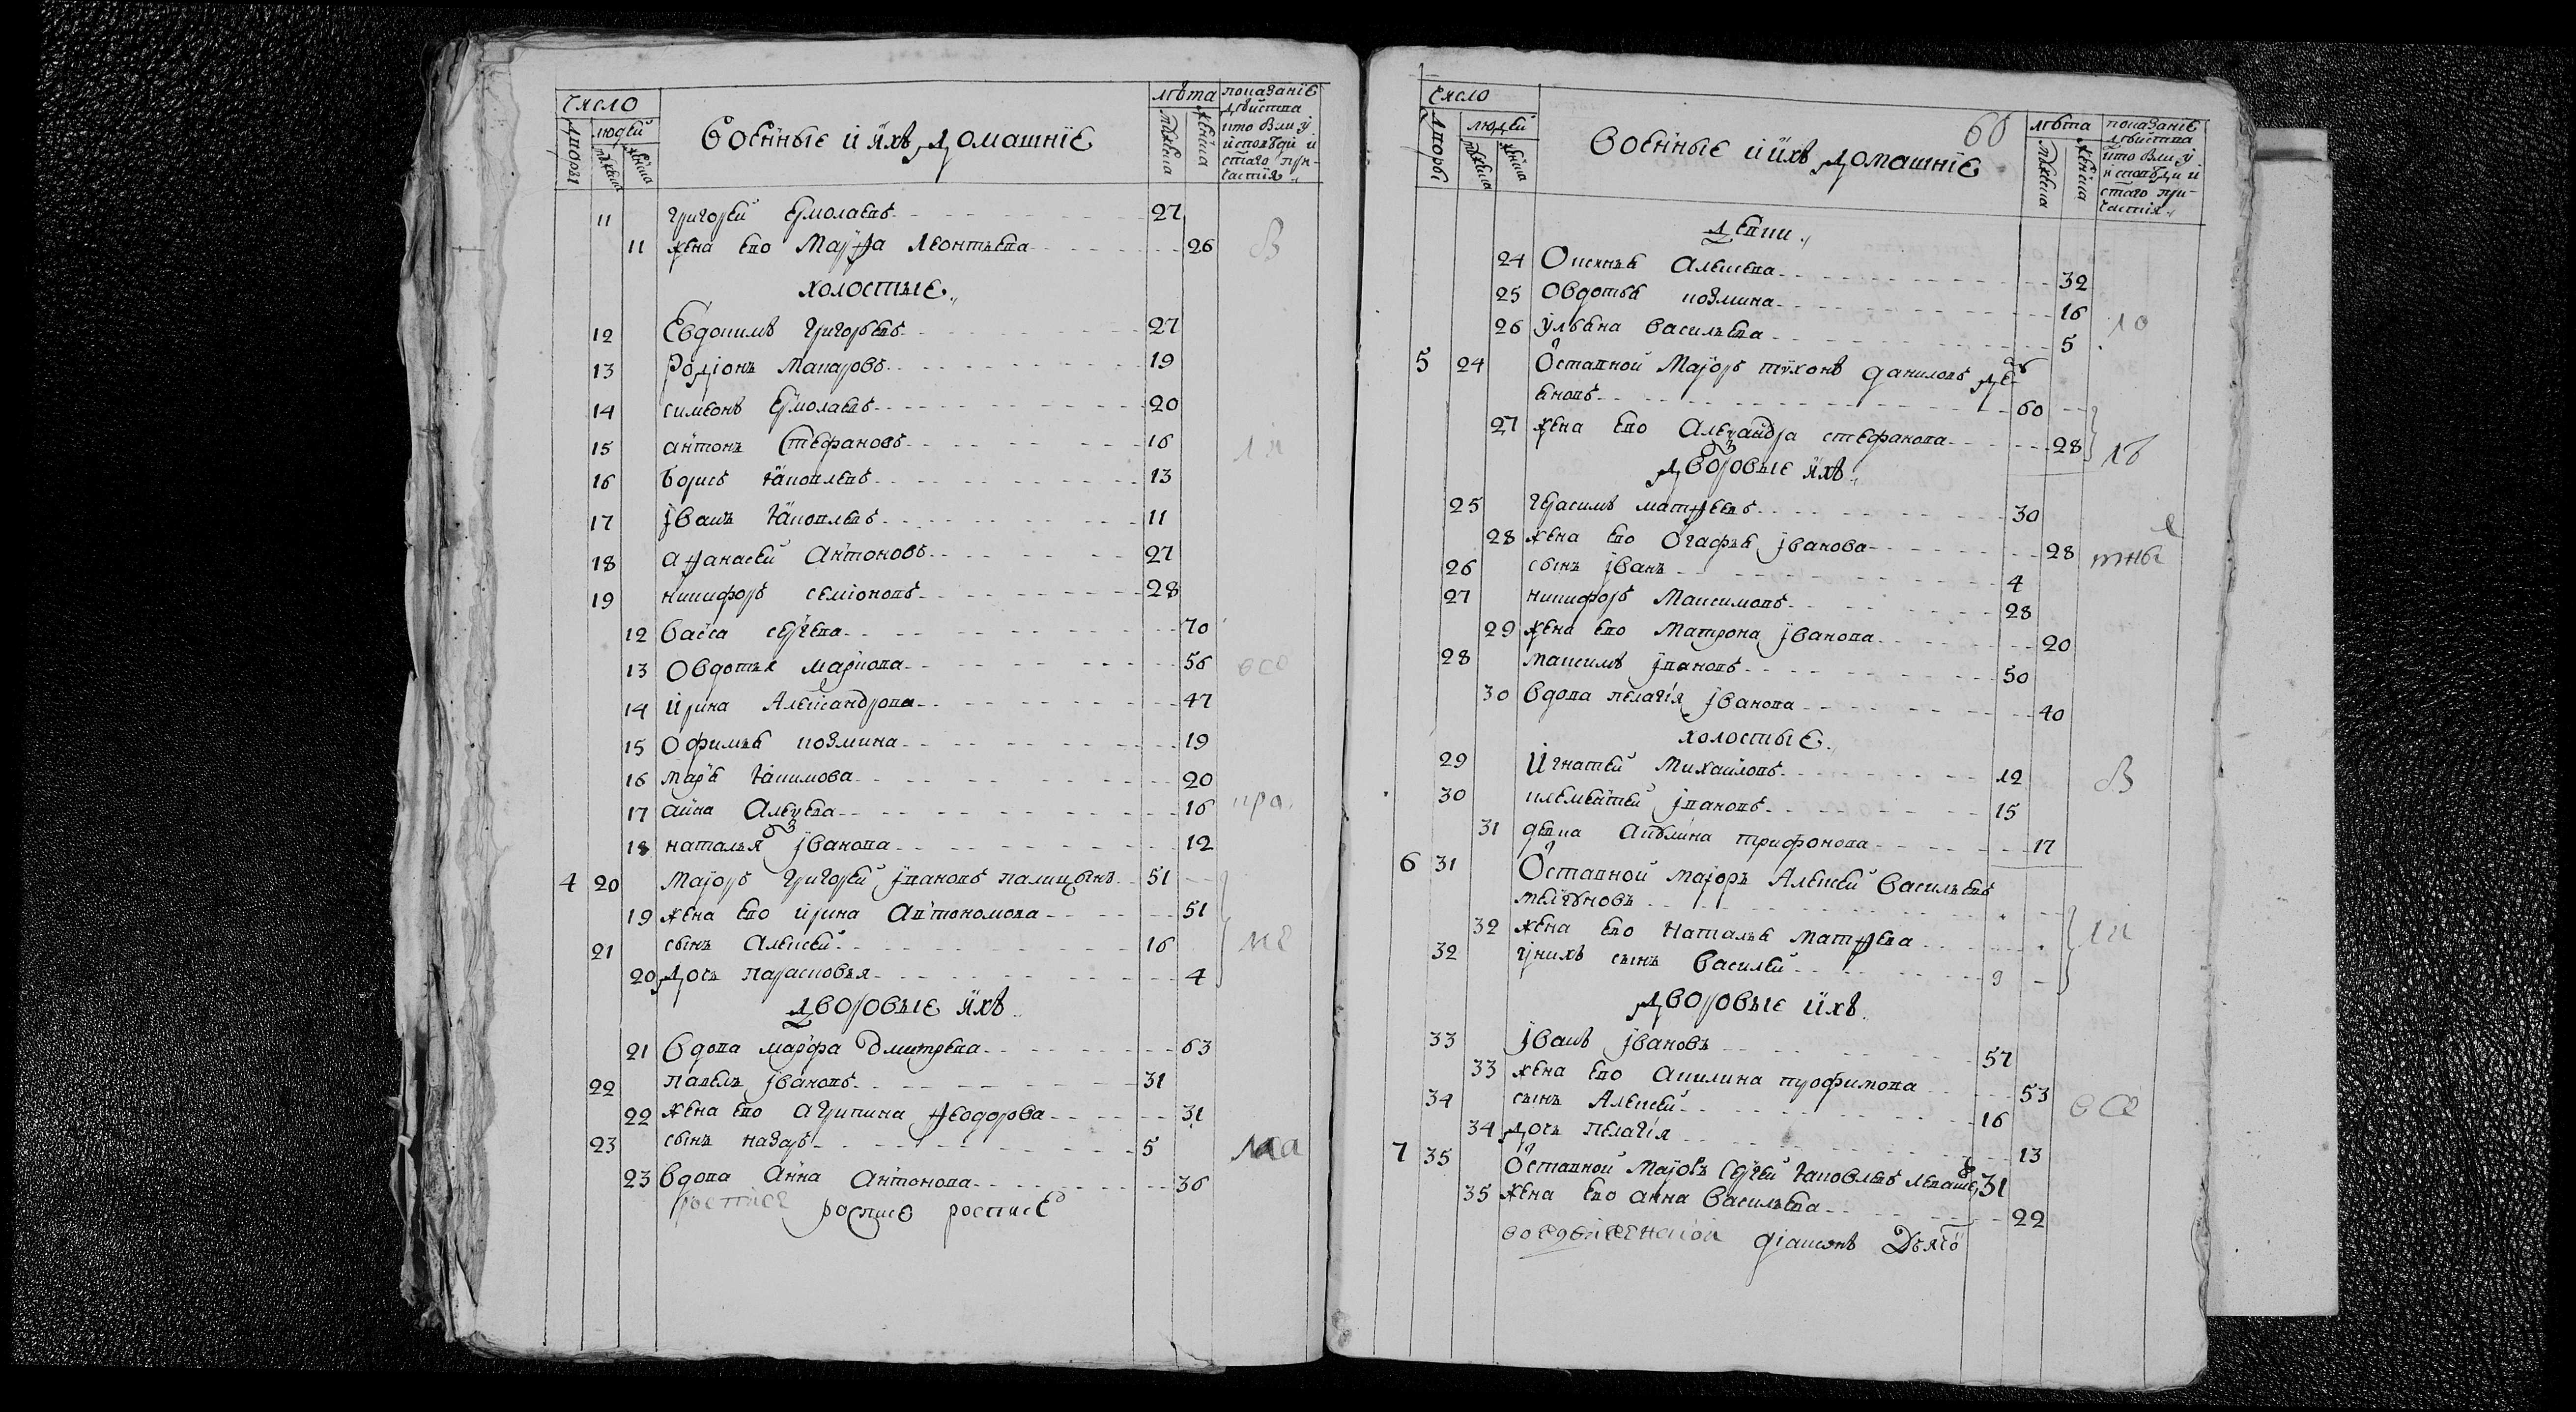 Число
дворы
людей
мужеска
женска
военные и ихъ домашнїе
лѣта
мужеска
женска
показанїе
действа
кто былъ у
исповеди и
с̃таго при-
частїя
11 григорей ермолаевъ 27
11 жена ево Марѳа леонтьева 26
холостые
12 Евдокимъ григорьевъ 27
13 Родїонъ макаровъ 19
14 симеонъ ермолаевъ 20
15 антонъ Стефановъ 16
16 борисъ яковлевъ 13
17 іванъ яковлевъ 11
18 аѳанасей антоновъ 27
19 никифоръ семїоновъ 28
12 васса сергева 70
13 овдотья маркова 56
14 ирина Александрова 47
15 офимья козмина 19
16 марья якимова 20
17 анна Алеѯева 16
18 наталья іванова 12
4 20 маіоръ григорей івановъ палицынъ 51
19 жена ево ирина автономова 51
21 сынъ алексей 16
20 дочь парасковья 4
дворовые ихъ
21 вдова марфа дмитрева 63
22 павелъ івановъ 31
22 жена ево агрипина ѳеодорова 31
23 сынъ назаръ 5
23 вдова анна антонова 36
росписе росписо росписе
Число
дворы
людей
мужеска
женска
военные и ихъ домашнїе
60
лѣта
мужеска
женска
показанїе
действа
кто былъ у
исповѣди и
с̃таго при-
частїя
девки
24 Оксинья алексева 32
25 Овдотья козмина 16
26 ульяна васильева 5
5 24 Отставной Маіоръ тихонъ даниловъ
60
27 жена ево Алеѯандра стефанова 28
дворовые ихъ
25 герасимъ матѳеевъ 30
28 жена ево Огафья іванова 28
26 сынъ іванъ 4
27 никифоръ Максимовъ 28
29 жена ево Матрона іванова 20
28 максимъ івановъ 50
30 вдова пелагїя іванова 40
холостые
29 Игнатей Михайловъ 12
30 клементей івановъ 15
31 девка акулина трифонова 17
6 31 Отставной маіоръ Алексей васильевъ
32 жена ево Наталья матѳева
32 у нихъ сынъ василей 9
дворовые ихъ
33 іванъ івановъ 57
33 жена ево акилина трофимова 53
34 сынъ Алексей 16
34 дочь пелагїя 13
7 35 Отставной маіоръ Сергей яковлевъ левашев 31
35 жена ево анна васильева 22
діаконъ